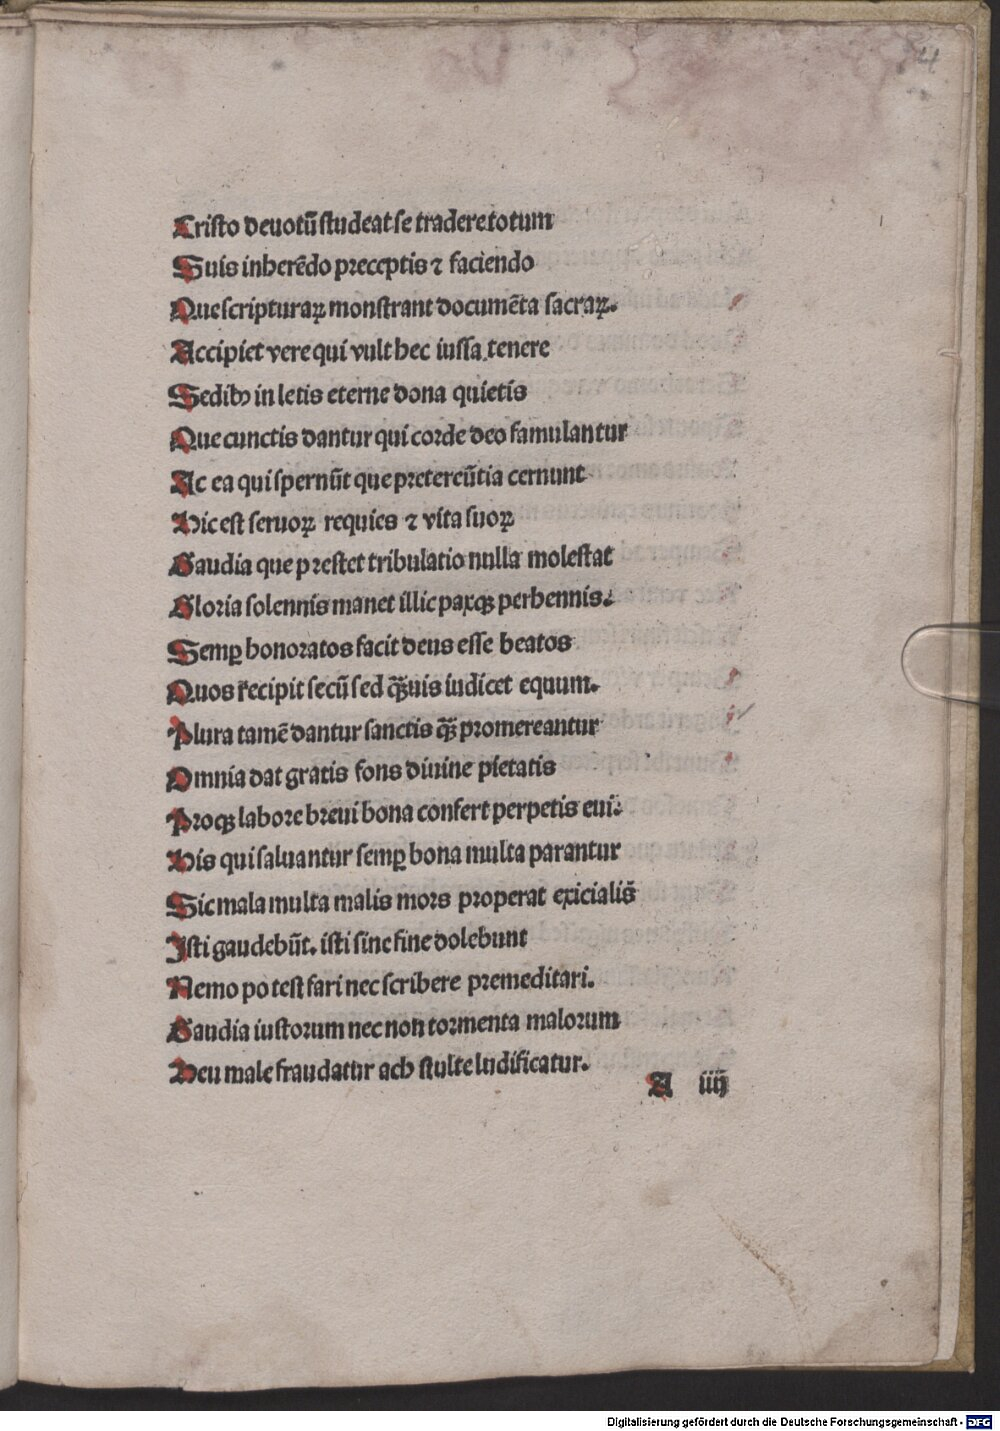 4
Cristo deuotū studeat se tradere totum
Suis inherēdo preceptis ⁊ faciendo
Que scripturaꝝ monstrant documēta sacraꝝ.
Accipiet vere qui vult hec iussa tenere
Sedibꝰ in letis eterne dona quietis
Que cunctis dantur qui corde deo famulantur
Ac ea qui spernūt que pretereūtia cernunt
Hic est seruoꝝ requies ⁊ vita suoꝝ
Gaudia que prestet tribulatio nulla molestat
Gloria solennis manet illic paxqꝫ perhennis.
Semꝑ honoratos facit deus esse beatos
Quos recipit secū sed qꝫ̄uis iudicet equum.
Plura tamē dantur sanctis qꝫ̄ promereantur
Omnia dat gratis fons diuine pietatis
Proqꝫ labore breui bona confert perpetis eui.
His qui saluantur semꝑ bona multa parantur
Sic mala multa malis mors properat exicialis
Isti gaudebūt. isti sine fine dolebunt
Nemo potest fari nec scribere premeditari.
Gaudia iustorum nec non tormenta malorum
Heu male fraudatur ach stulte ludificatur.
A iiij
Digitalisierung gefördert durch die Deutsche Forschungsgemeinschaft - DFG